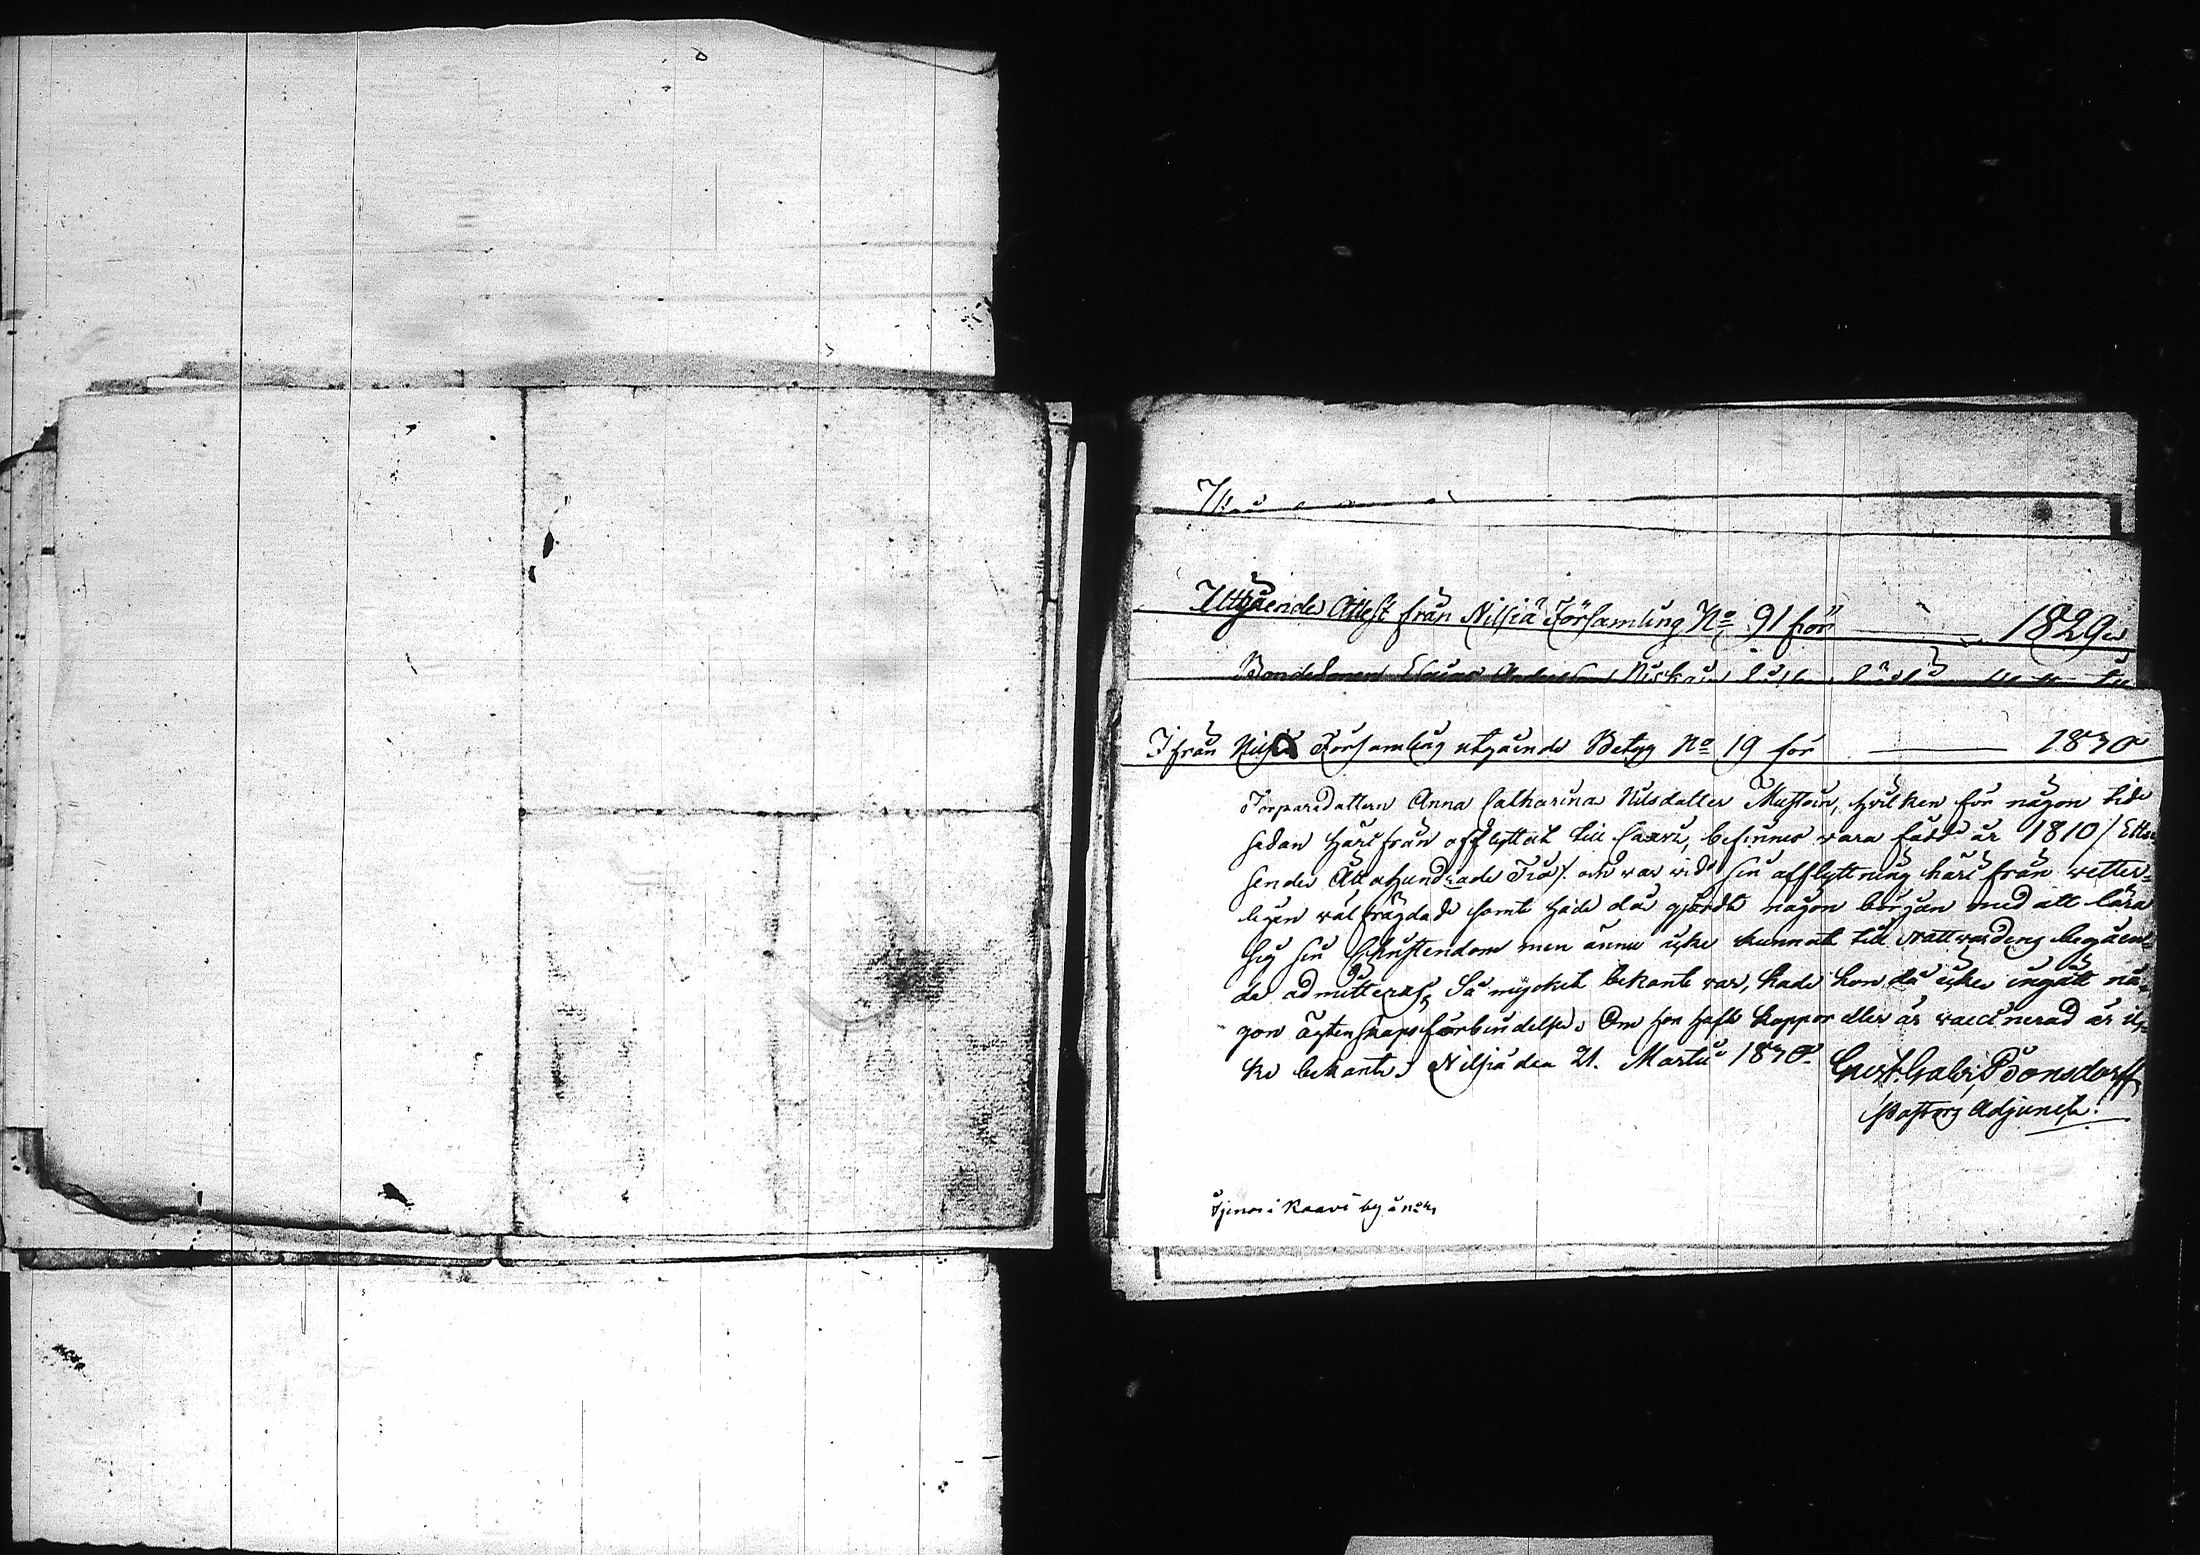 Utgående Attest från Nilsiä Församling No 91 för 1829.
Bondesonen
Ifrån Nilsiä Församling utgående Betyg No 19 för 1830
Torparedottern Anna Catharina Nilsdotter Mustoin, hvilken för någon tid
sedan härifrån afflyttat till Caavi, befinnes vara född år 1810 / Etttu-
sende Åttahundrade Tio /. och var vid sin afflyttning härifrån vetter-
ligen väl frägdad samt hade då gjordt någon början med att lära
sig sin Christendom men ännu icke kunnat till Nattvardens begåen-
de admitteras, Så mycket bekant var, hade hon då icke ingått nå-
gon ägtenskapsförbindelse. Om hon haft koppor eller är vaccinerad är ic-
ke bekant. Nilsiä den 21. Martii 1830. Gust. Gabr. Bonsdorff
Pastors Adjunct.
Tjenar i Kaavi by å No